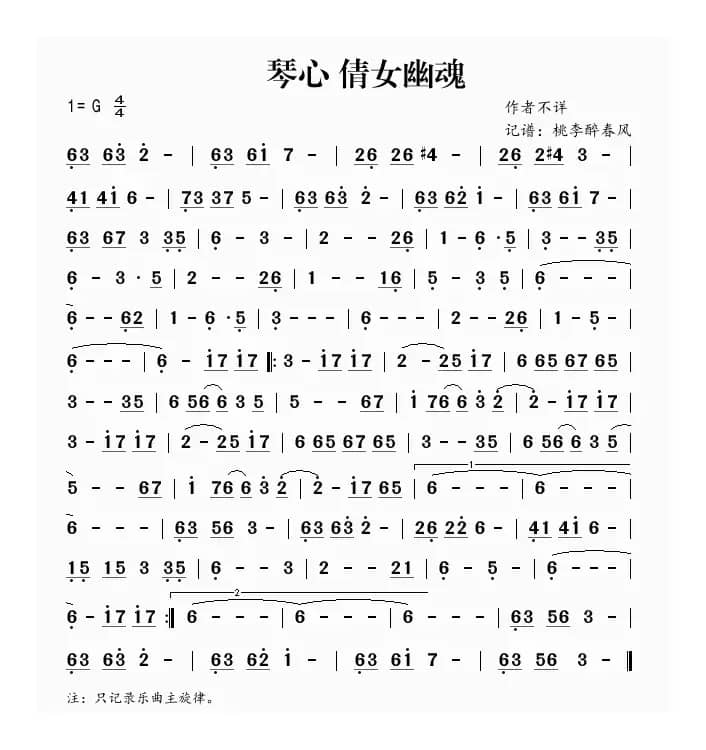 琴心 倩女幽魂
1= G 4/4
作者不详
记谱：桃李醉春风
6̣3 63̇ 2̇ - | 6̣3 61̇ 7 - | 26̣ 26 #4 - | 26̣ 2#4 3 - |
4̣1 41̇ 6 - | 7̣3 37 5 - | 6̣3 63̇ 2̇ - | 6̣3 62̇ 1̇ - | 6̣3 61̇ 7 - |
6̣3 67 3 3̣5̣ | 6̣ - 3 - | 2 - - 26̣ | 1 - 6̣ · 5̣ | 3̣ - - 3̣5̣ |
6̣ - 3 · 5 | 2 - - 26̣ | 1 - - 16̣ | 5̣ - 3̣ 5̣ | 6̣ - - - |
6̣ - - 6̣2 | 1 - 6̣ · 5̣ | 3̣ - - - | 6̣ - - - | 2 - - 26̣ | 1 - 5̣ - |
6̣ - - - | 6̣ - 1̇7 1̇7 ‖: 3 - 1̇7 1̇7 | 2 - 25 1̇7 | 6 65 67 65 |
3 - - 35 | 6 56 6 3 5 | 5 - - 67 | 1̇ 76 6 3̇ 2̇ | 2̇ - 1̇7 1̇7 |
3 - 1̇7 1̇7 | 2 - 25 1̇7 | 6 65 67 65 | 3 - - 35 | 6 56 6 3 5 |
1
5 - - 67 | 1̇ 76 6 3̇ 2̇ | 2̇ - 1̇7 65 | 6 - - - | 6 - - - |
6 - - - | 6̣3 56 3 - | 6̣3 63̇ 2̇ - | 26̣ 22̇ 6 - | 4̣1 41̇ 6 - |
1̣5̣ 15 3 3̣5̣ | 6̣ - - 3 | 2 - - 21 | 6̣ - 5̣ - | 6̣ - - - |
2
6̣ - 1̇7 1̇7 :‖ 6 - - - | 6 - - - | 6 - - - | 6̣3 56 3 - |
6̣3 63̇ 2̇ - | 6̣3 62̇ 1̇ - | 6̣3 61̇ 7 - | 6̣3 56 3 - ‖
注：只记录乐曲主旋律。